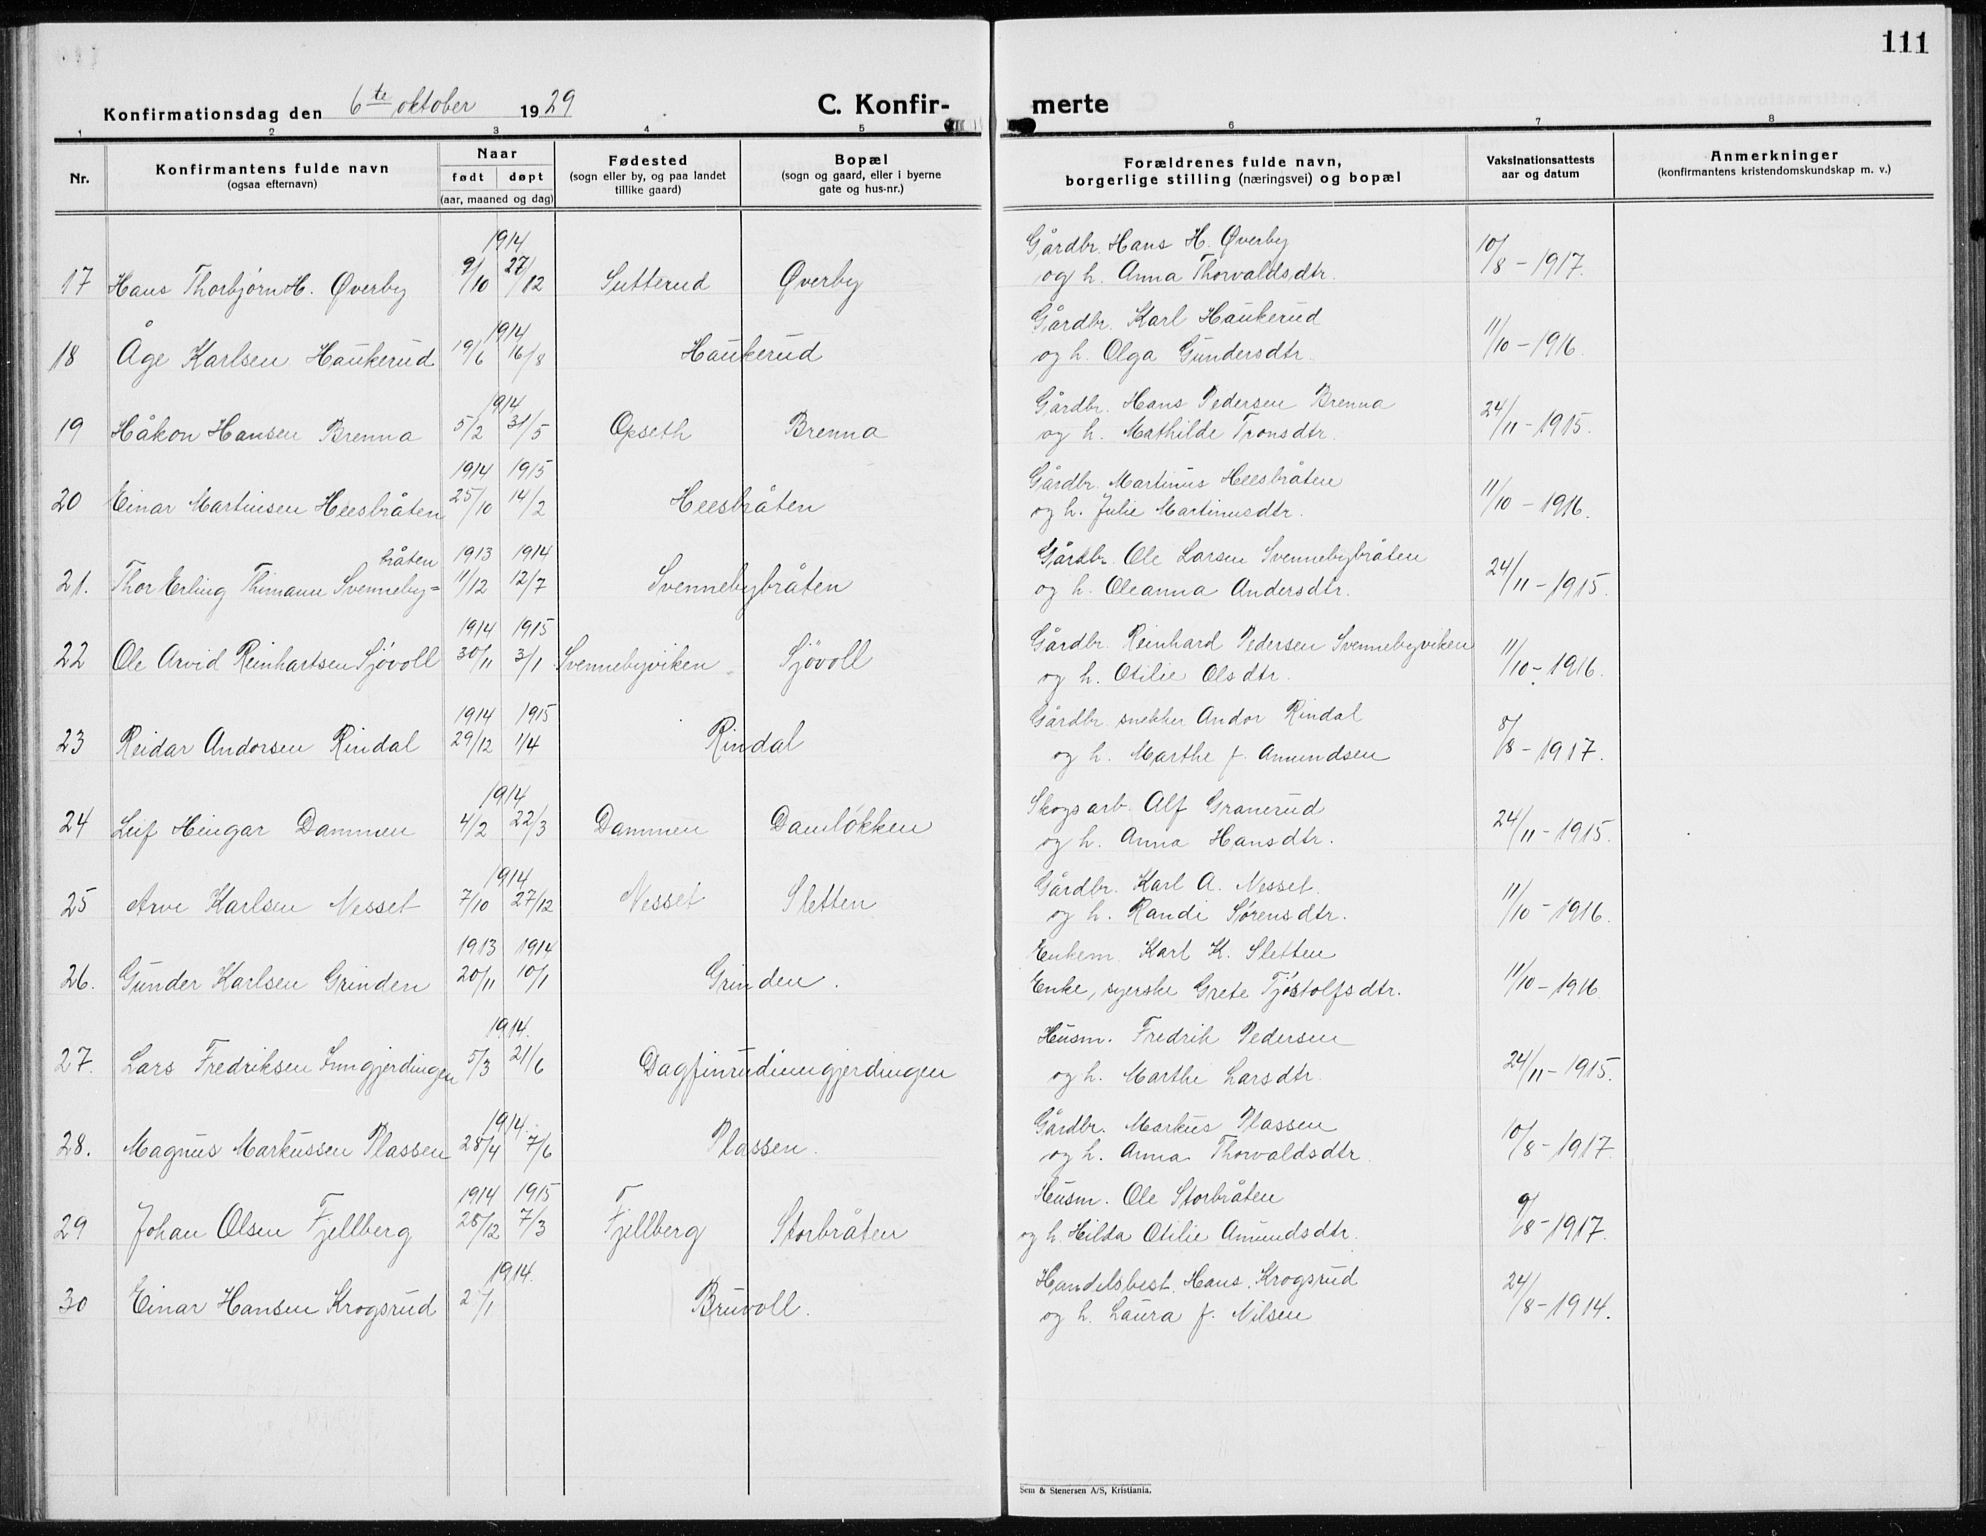 111
Konfirmationsdag den 6te oktober 1929 C. Konfir- merte
1 2 3 4 5 6 7 8
Nr. Konfirmantens fulde navn (ogsaa efternavn) Naar født døpt (aar, maaned og dag) Fødested (sogn eller by, og paa landet tillike gaard) Bopæl (sogn og gaard, eller i byerne gate og hus-nr.) Forældrenes fulde navn, borgerlige stilling (næringsvei) og bopæl Vaksinationsattests aar og datum Anmerkninger (konfirmantens kristendomskundskap m. v.)
1914 Gårdbr. Hans H. Øverby
17 Hans Thorbjørn H. Øverby 9/10 27/12 Sutterud Øverby og h. Anna Thorvaldsdtr. 10/8 - 1917.
1914 Gårdbr. Karl Haukerud
18 Åge Karlsen Haukerud 19/6 16/8 Haukerud og h. Olga Gundersdtr. 11/10 - 1916.
1914 Gårdbr. Hans Pedersen Brenna
19 Håkon Hansen Brenna 5/2 31/5 Opseth Brenna og h. Mathilde Tronsdtr. 24/11 - 1915.
1914 1915 Gårdbr. Martinus Heesbråten
20 Einar Martinsen Heesbråten 25/10 14/2 Heesbråten og h. Julie Martinusdtr. 11/10 - 1916.
bråten 1913 1914 Gårdbr. Ole Larsen Svennebybråten
21. Thor Erling Thimann Svenneby= 11/12 12/7 Svennebybråten og h. Oleanna Andersdtr. 24/11 - 1915.
1914 1915 Gårdbr. Reinhard Pedersen Svennebyviken
22 Ole Arvid Reinhartsen Sjövoll 30/11 3/1 Svennebyviken Sjövoll og h. Otilie Olsdtr. 11/10 - 1916.
1914 1915 Gårdbr. snekker Andor Rindal
23 Reidar Andorsen Rindal 29/12 1/4 Rindal og h. Marthe f. Amundsen 8/8 - 1917.
1914 Skogsarb. Alf Granerud
24 Leif Hengar Dammen 4/2 22/3 Dammen Damløkken og h. Anna Hansdtr. 24/11 - 1915.
1914 Gårdbr. Karl A. Nesset.
25 Arve Karlsen Nesset 7/10 27/12 Nesset Sletten og h. Randi Sørensdtr. 11/10 - 1916.
1913 1914 Enkem. Karl K. Sletten
26. Gunder Karlsen Grinden 20/11 10/1 Grinden. Enke, syerske Grete Tjöstolfsdtr. 11/10 - 1916
1914. Husm. Fredrik Pedersen
27. Lars Fredriksen Inngjerdingen 5/3 21/6 Dagfinrudinngjerdingen og h. Marthe Larsdtr. 24/11 - 1915.
1914. Gårdbr. Markus Plassen
28. Magnus Markussen Plassen 28/4 7/6 Plassen. og h. Anna Thorvaldsdtr. 10/8 - 1917.
1914 1915 Husm. Ole Storbråten
29 Johan Olsen Fjellberg 28/12 7/3 Fjellberg Storbråten og h. Hilda Otilie Amundsdtr. 9/8 - 1917.
1914. Handelsbest. Hans Krogsrud
30 Einar Hansen Krogsrud 2/1 Bruvoll. og h. Laura f. Nilsen 24/8 - 1914.
Sem & Stenersen A/S, Kristiania.